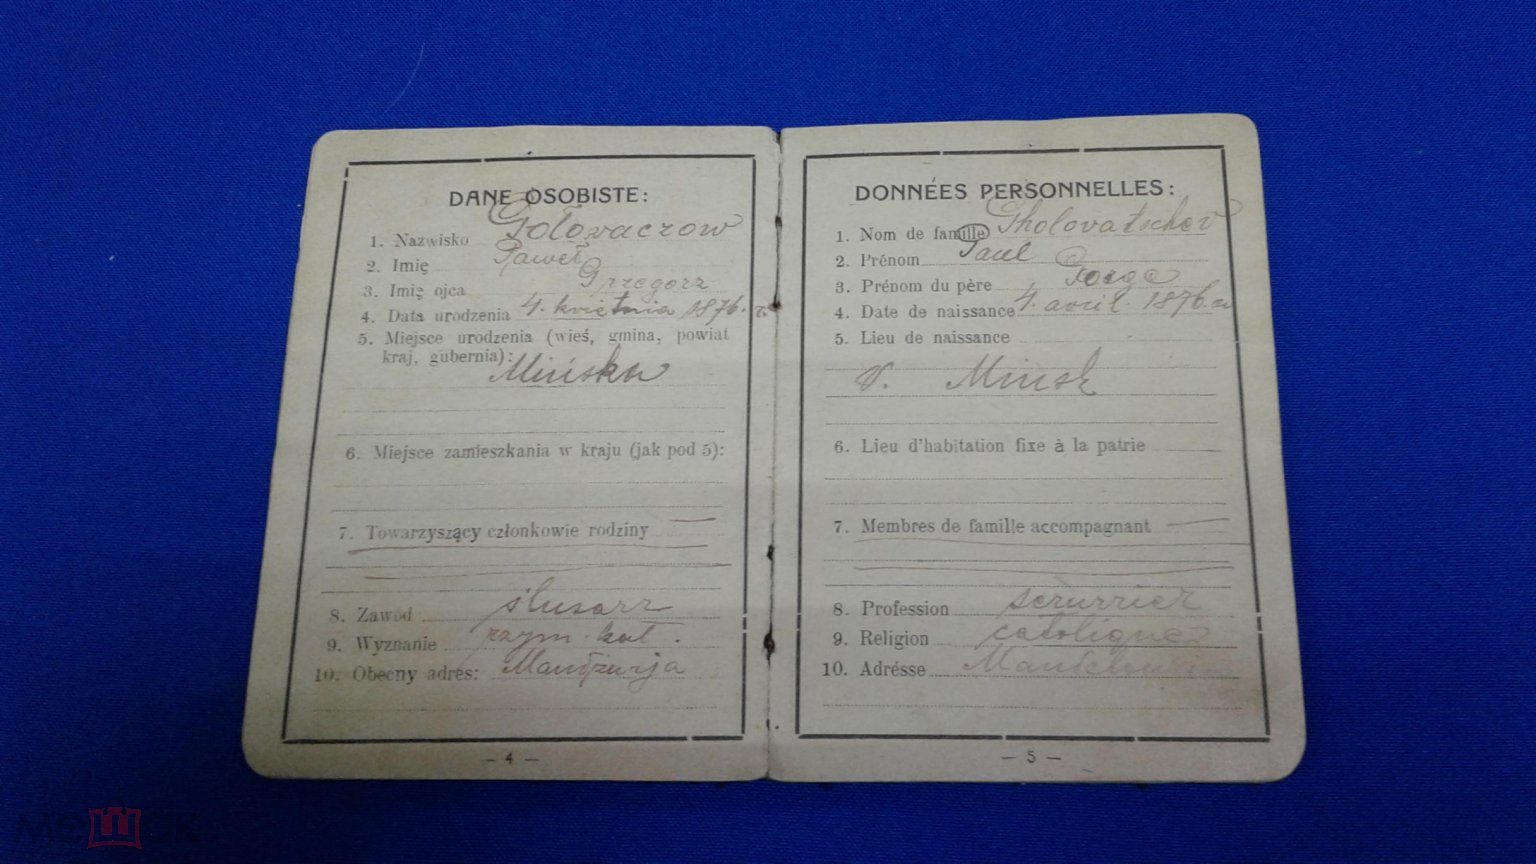 DANE OSOBISTE:
1. Nazwisko Gołovaczow
2. Imię Paweł
3. Imię ojca Grzegorz
4. Data urodzenia 4. kwietnia 1876. r.
5. Miejsce urodzenia (wieś, gmina, powiat
kraj, gubernia):
Mińsk
6. Miejsce zamieszkania w kraju (jak pod 5):
7. Towarzyszący członkowie rodziny
8. Zawód ślusarz
9. Wyznanie rzym. kat.
10. Obecny adres: Mandżurja
— 4 —
DONNÉES PERSONNELLES:
1. Nom de famille Gholovatschev
2. Prénom Paul
3. Prénom du père
4. Date de naissance 4. avril 1876.
5. Lieu de naissance
v. Minsk
6. Lieu d'habitation fixe à la patrie
7. Membres de famille accompagnant
8. Profession serurrier
9. Religion
10. Adrésse
— 5 —
мешок